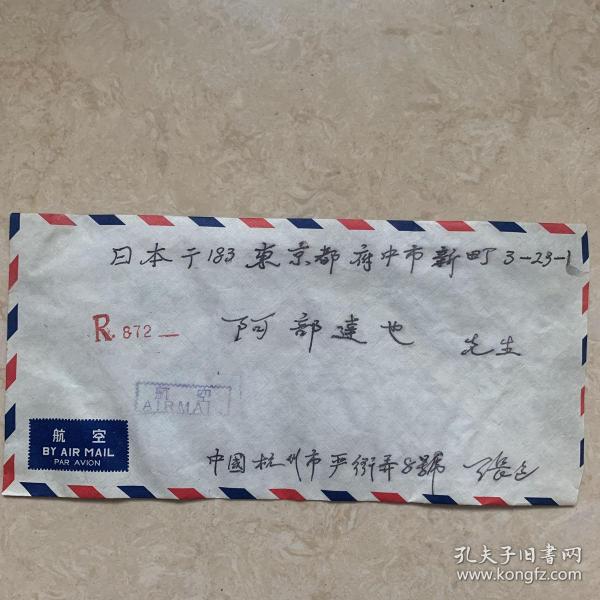 日本〒183 東京都府中市新町3-23-1
R 872
阿部達也
先生
航空
AIRMAI
航空
BY AIR MAIL
PAR AVION
中國杭州市严衙弄8號 張
孔夫子旧书网
www.kongfz.com